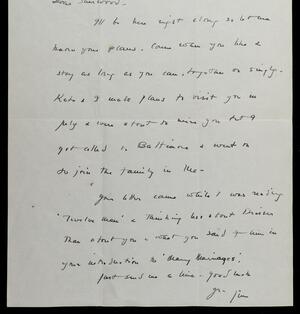 Dear Sherwood -
I'll be here right along so let me
know your plans. Come when you like &
stay as long as you can, together or singly.
Kate & I make plans to visit you in
July & were about to wire you but I
got called to Baltimore & went on
to join the family in Me -
Your letter came while I was reading
"Twelve Men" & thinking less about Dreiser
than about you & what you said of him in
your introduction to "Many Marriages".
Just send me a line - good luck
Yr - Jim